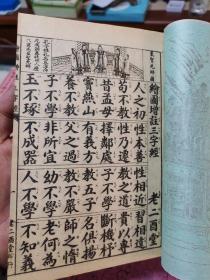 繪圖增註三字經
老二酉堂
人之初性本善性相近習相遠
苟不教性乃遷教之道貴以專
昔孟母擇鄰處子不學斷機杼
竇燕山有義方教五子名俱揚
養不教父之過教不嚴師之惰
子不學非所宜幼不學老何為
玉不琢不成器人不學不知義
老二酉堂